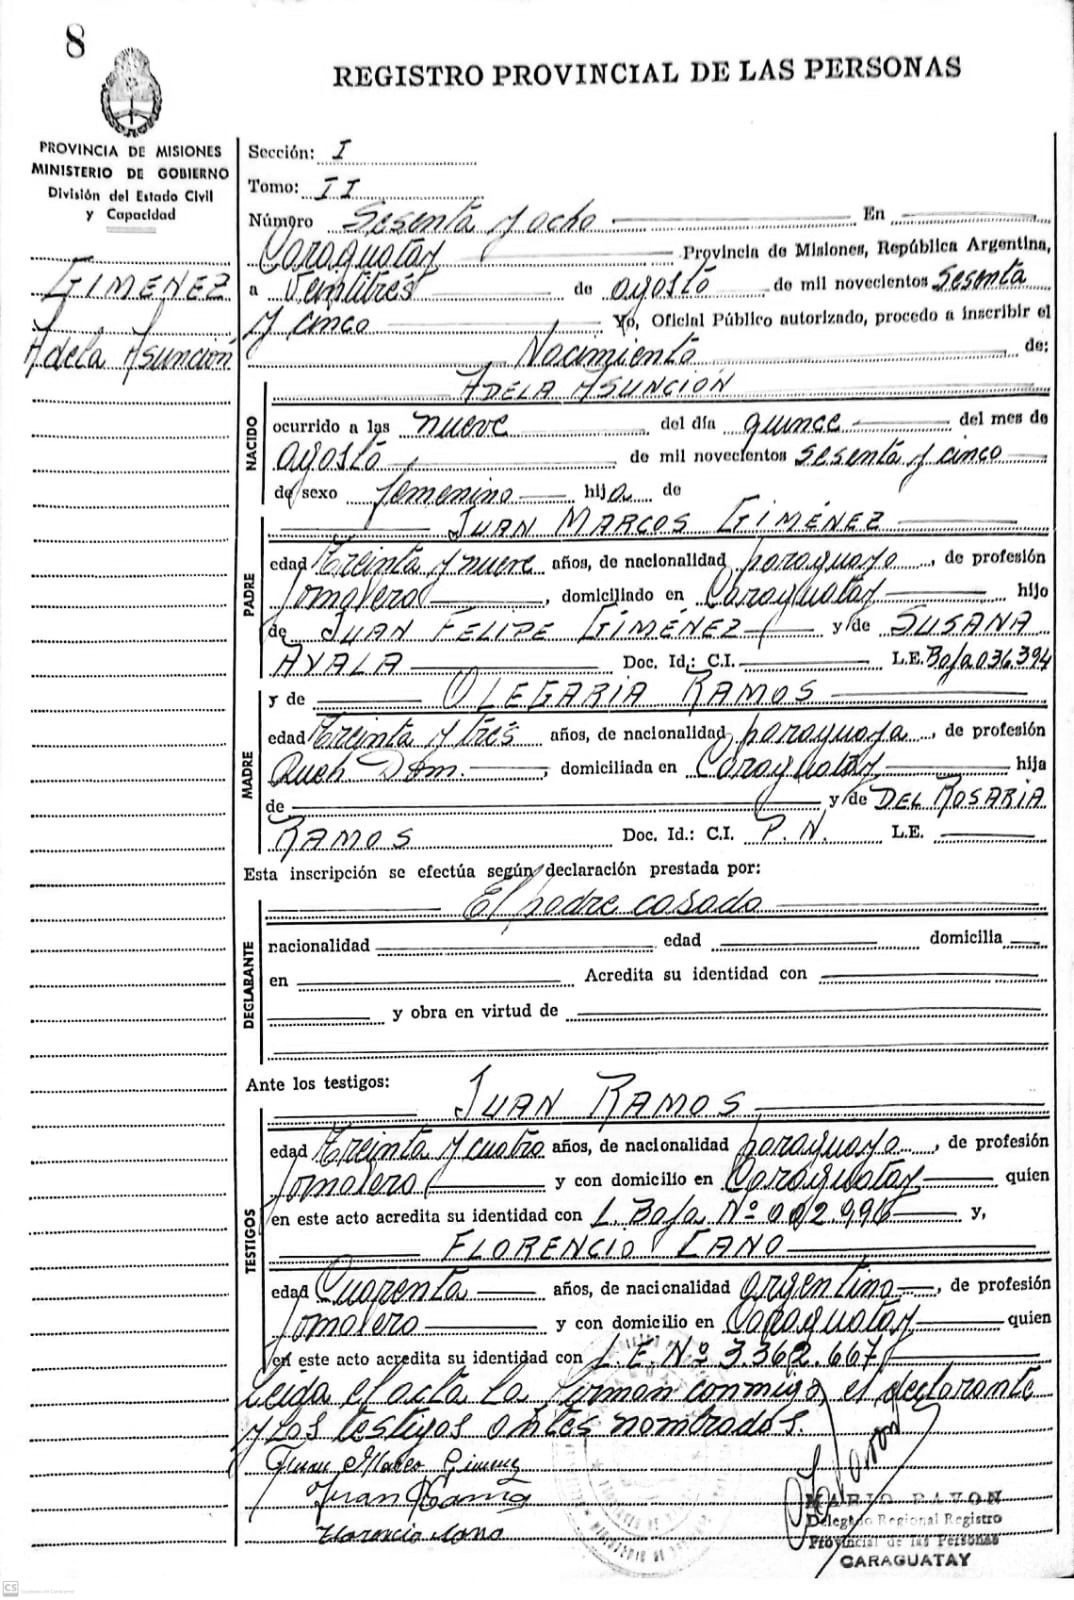 8
REGISTRO PROVINCIAL DE LAS PERSONAS
PROVINCIA DE MISIONES
MINISTERIO DE GOBIERNO
División del Estado Civil
y Capacidad
GIMENEZ
Adela Asunción
Sección: I
Tomo: II
Número Sesenta y ocho En
Caraguatay Provincia de Misiones, República Argentina,
a Veintitrés de agosto de mil novecientos Sesenta
y cinco Yo, Oficial Público autorizado, procedo a inscribir el
Nacimiento de:
NACIDO
ADELA ASUNCIÓN
ocurrido a las nueve del día quince del mes de
agosto de mil novecientos sesenta y cinco
de sexo femenino hija de
PADRE
JUAN MARCOS GIMÉNEZ
edad Treinta y nueve años, de nacionalidad paraguayo, de profesión
Jornalero, domiciliado en Caraguatay hijo
de JUAN FELIPE GIMÉNEZ y de SUSANA
AYALA Doc. Id.: C.I. L.E. Baja 036.394
MADRE
y de OLEGARIA RAMOS
edad Treinta y trés años, de nacionalidad paraguaya, de profesión
Queh. Dom., domiciliada en Caraguatay hija
de y de DEL ROSARIA
RAMOS Doc. Id.: C.I. P.N. L.E.
Esta inscripción se efectúa según declaración prestada por:
DECLARANTE
El padre casado
nacionalidad edad domicilia
en Acredita su identidad con
y obra en virtud de
Ante los testigos:
TESTIGOS
JUAN RAMOS
edad Treinta y cuatro años, de nacionalidad paraguayo, de profesión
Jornalero y con domicilio en Caraguatay quien
en este acto acredita su identidad con L. Baja Nº 002.996 y,
FLORENCIO CANO
edad Cuarenta años, de nacionalidad argentino, de profesión
Jornalero y con domicilio en Caraguatay quien
en este acto acredita su identidad con L.E. Nº 3.362.667
Leida el acta la firman conmigo, el declarante
y los testigos antes nombrados.
Juan Marco Gimenez
Juan Ramos
Florencio Cano
MARIO PAVON
Delegado Regional Registro
Provincial de las Personas
CARAGUATAY
CS